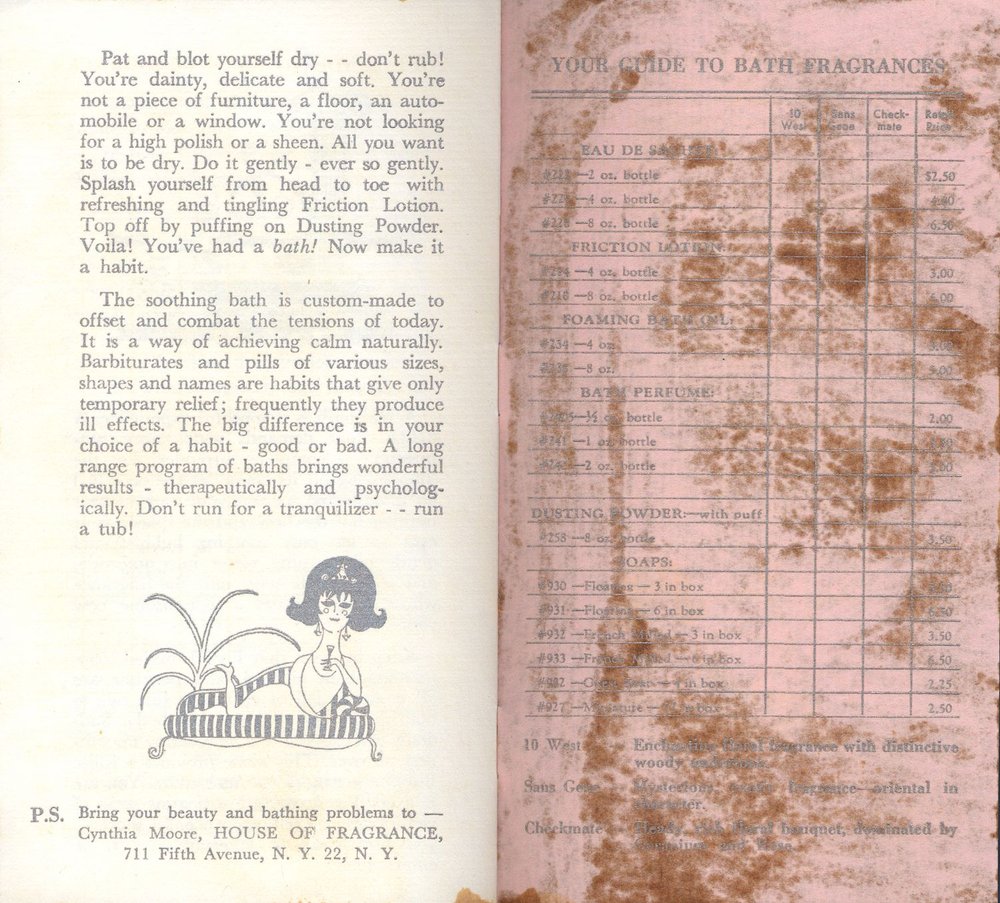 Pat and blot yourself dry - - don't rub!
You're dainty, delicate and soft. You're
not a piece of furniture, a floor, an auto-
mobile or a window. You're not looking
for a high polish or a sheen. All you want
is to be dry. Do it gently - ever so gently.
Splash yourself from head to toe with
refreshing and tingling Friction Lotion.
Top off by puffing on Dusting Powder.
Voila! You've had a bath! Now make it
a habit.
The soothing bath is custom-made to
offset and combat the tensions of today.
It is a way of achieving calm naturally.
Barbiturates and pills of various sizes,
shapes and names are habits that give only
temporary relief; frequently they produce
ill effects. The big difference is in your
choice of a habit - good or bad. A long
range program of baths brings wonderful
results - therapeutically and psycholog-
ically. Don't run for a tranquilizer - - run
a tub!
P.S. Bring your beauty and bathing problems to —
Cynthia Moore, HOUSE OF FRAGRANCE,
711 Fifth Avenue, N. Y. 22, N. Y.
YOUR GUIDE TO BATH FRAGRANCES
10 West Sans Gene Check-mate Retail Price
EAU DE
—2 oz. bottle $2.50
—4 oz. bottle
—8 oz. bottle 6.50
FRICTION LOTION:
—4 oz. bottle 3.00
—8 oz. bottle
FOAMING BATH OIL:
#234 —4 oz.
—8 oz. 5.00
BATH PERFUME:
—½ oz. bottle 2.00
#241 —1 oz. bottle
—2 oz. bottle
DUSTING POWDER:—with puff
#258 —8 oz. bottle 3.50
SOAPS:
#930 —Floating — 3 in box
#931 —Floating — 6 in box
#932 —French Milled — 3 in box 3.50
#933 —French Milled — 6 in box 6.50
in box 2.25
#927 —Miniature — in box 2.50
10 West — Enchanting floral fragrance with distinctive
woody
Sans Gene — Mysterious, exotic fragrance—oriental in
character.
Checkmate — floral bouquet, dominated by
and Rose.